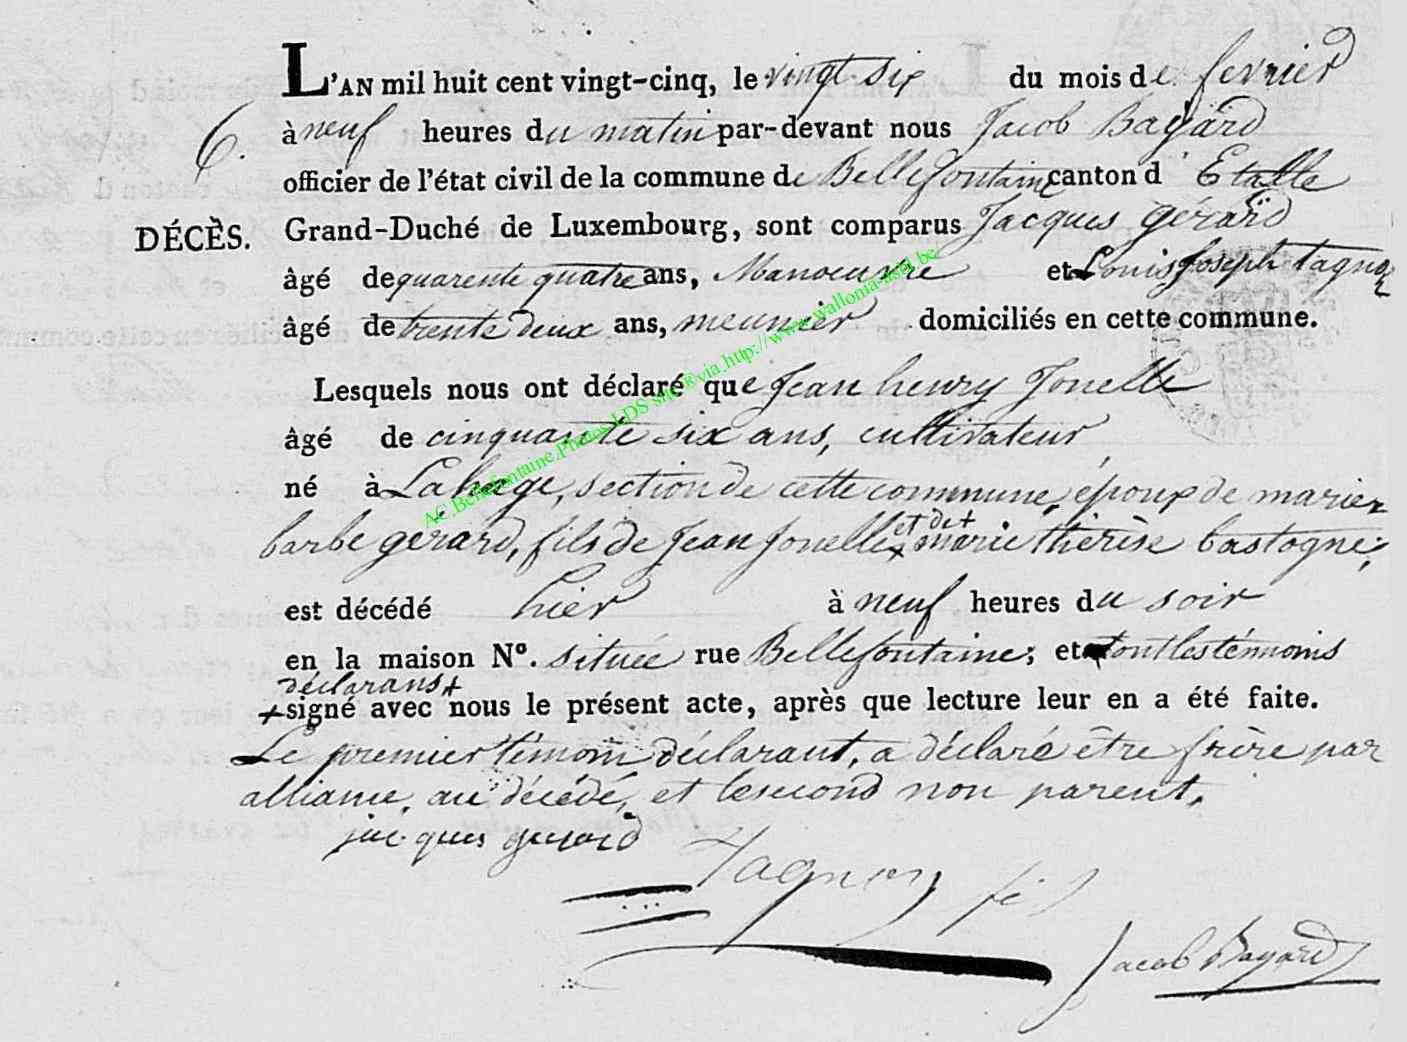 L'AN mil huit cent vingt-cinq, le vingt six du mois de fevrier
6. à neuf heures du matin par-devant nous Jacob Bayard
officier de l'état civil de la commune de Bellefontaine canton d'Etalle
DÉCÈS. Grand-Duché de Luxembourg, sont comparus Jacques gérard
âgé de quarente quatre ans, Manoeuvre et Louis joseph tagnon
âgé de trente deux ans, meunier domiciliés en cette commune.
Lesquels nous ont déclaré que Jean henry Jonelle
âgé de cinquante six ans, cultivateur,
né à Lahage, section de cette commune, époux de marie
barbe gérard, fils de Jean Jonelle + et de + marie thérèse bastogne,
est décédé hier à neuf heures du soir
en la maison N°. située rue Bellefontaine; et ont les témoins
déclarans +
+ signé avec nous le présent acte, après que lecture leur en a été faite.
Le premier témoin déclarant, a déclaré être frère par
alliance, au décédé, et le second non parent.
jacques gerard
Tagnon fils
Jacob Bayard
AC Bellefontaine, Photos LDS sites®via http://www.wallonia-asbl.be